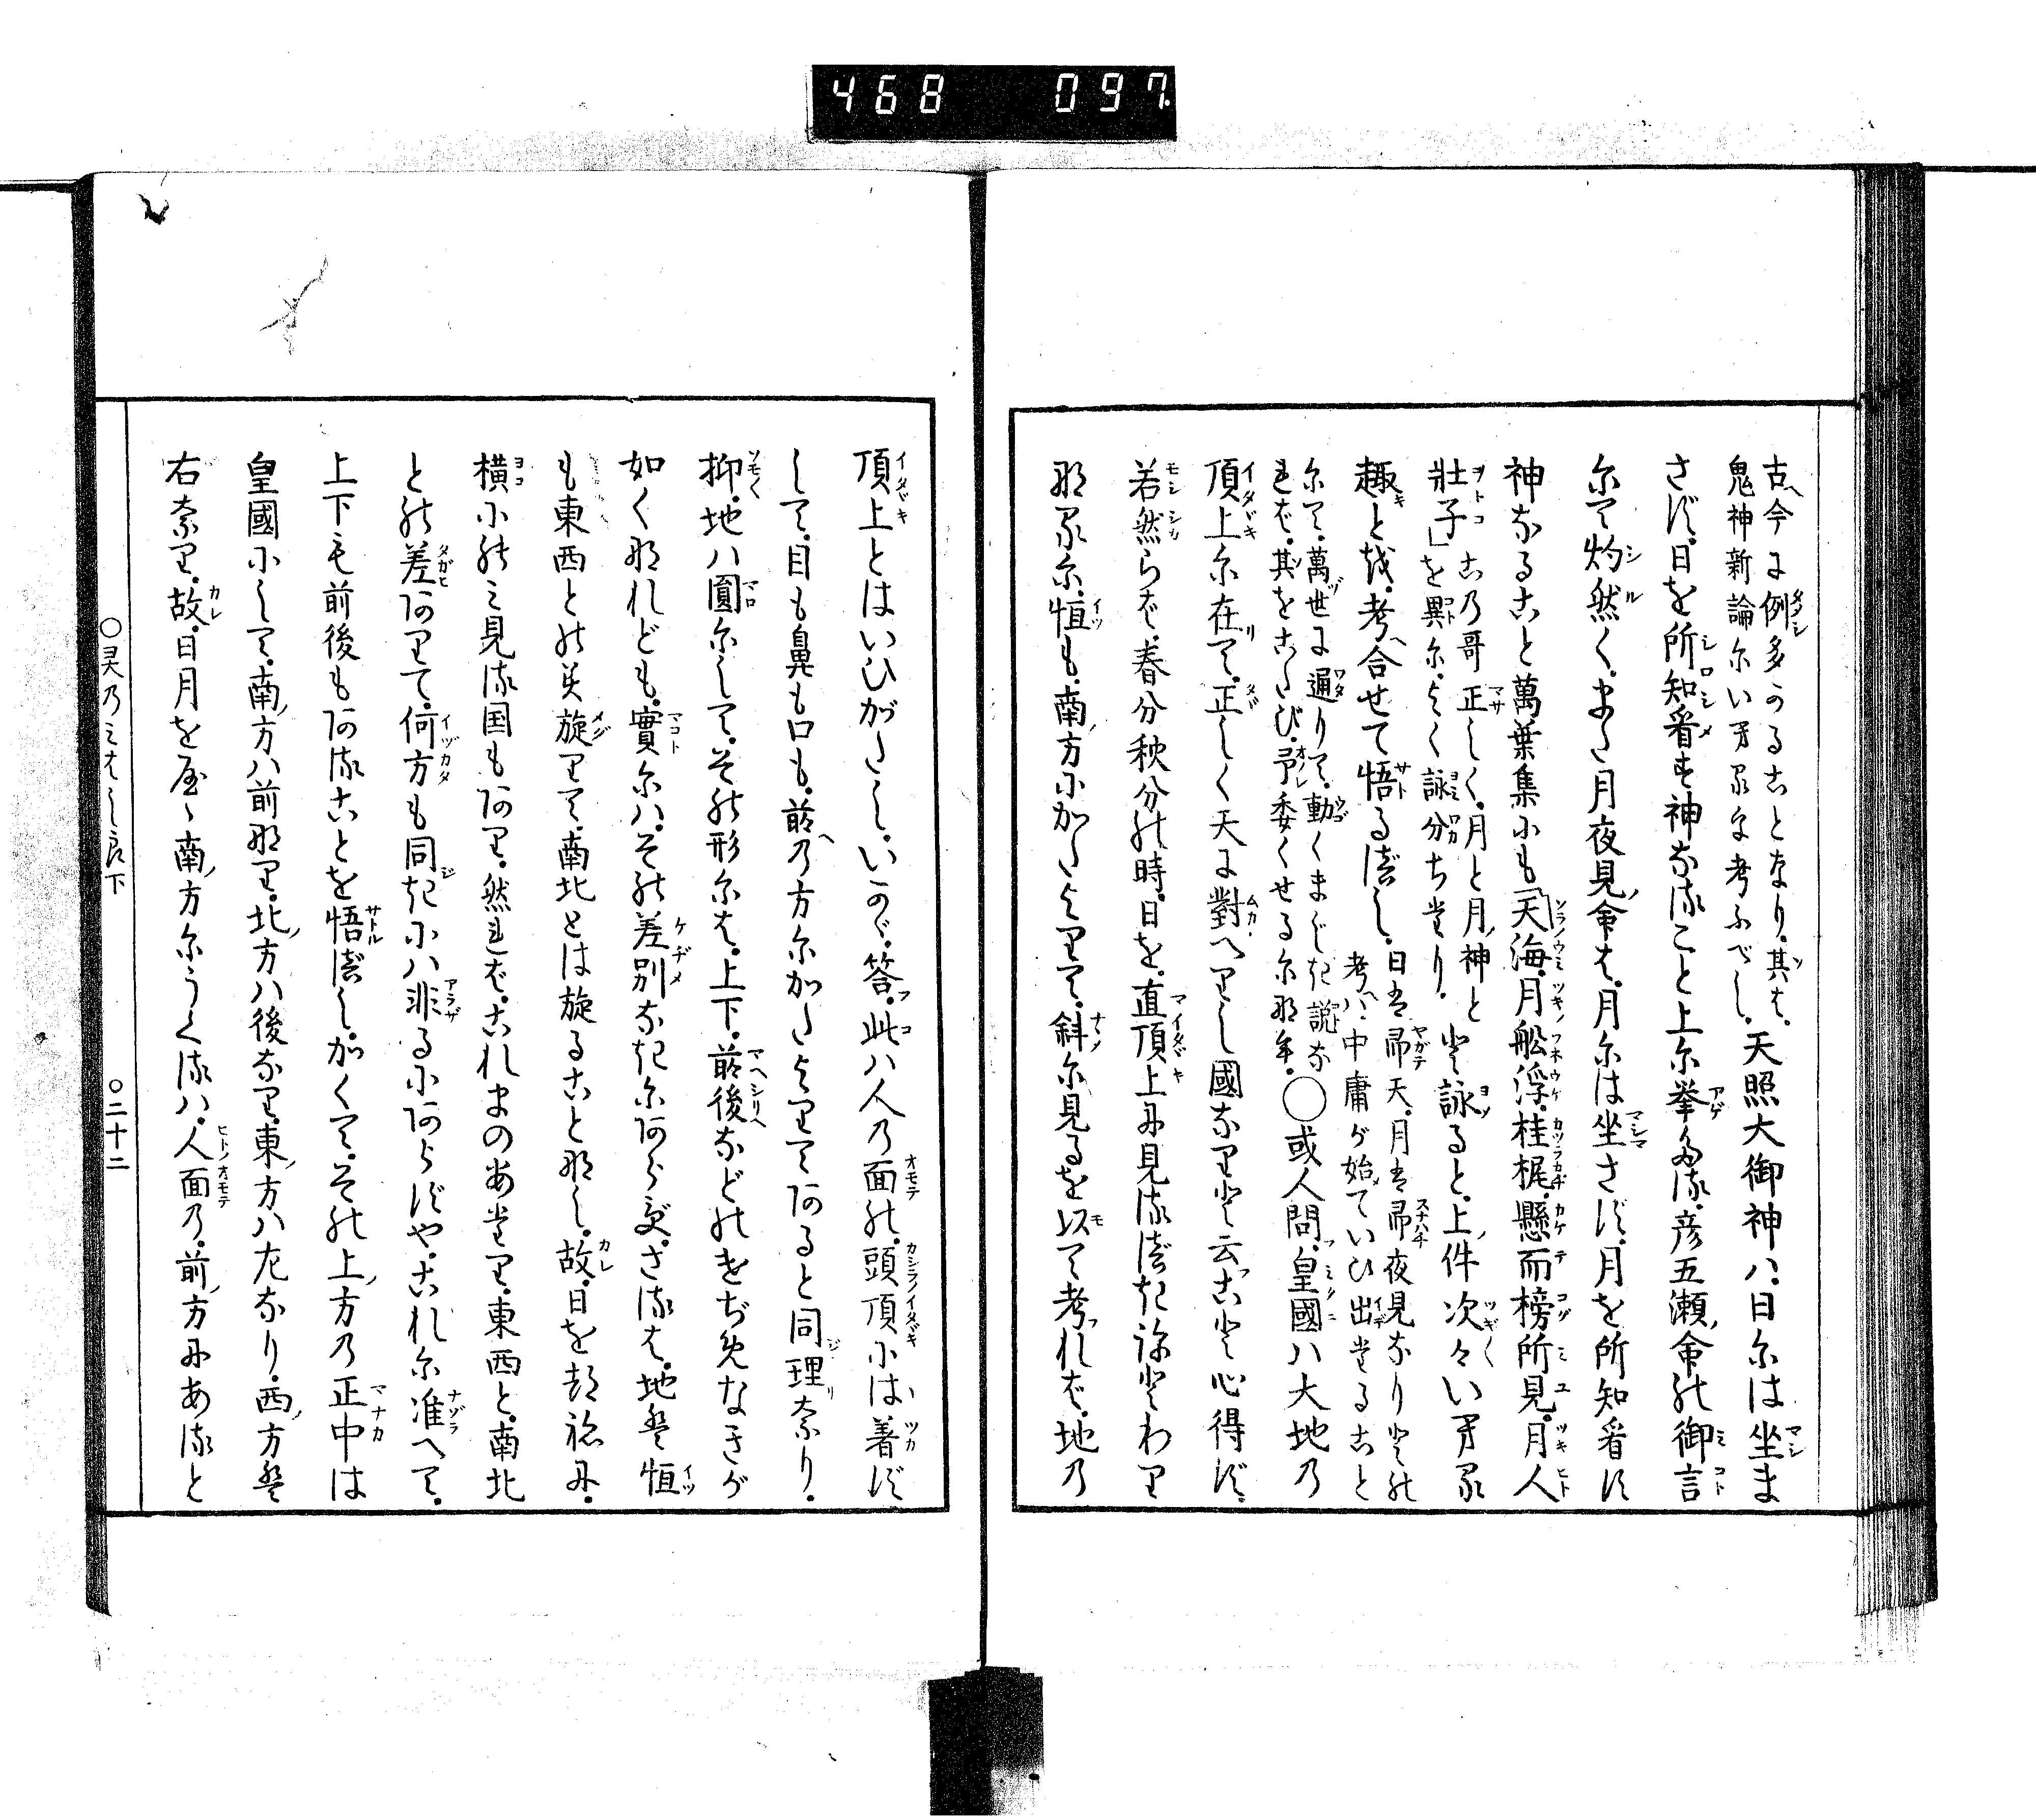 468 097
古今に例多かることなり。其は、
鬼神新論にいへるを考ふべし。天照大御神ハ、日には坐ま
さず、日を所知看す神なること上に挙たる、彦五瀬ノ命の御言
にて灼然く、また月夜見ノ命は、月には坐さず、月を所知看す
神なること萬葉集にも「天海。月船浮。桂梶。懸而榜所見。月人
壮子」この哥正しく、月と月ノ神と
を異に、よく詠分ちたり。と詠ると、上ノ件次々いへる
趣とを、考ヘ合せて悟るべし。日は即天、月は即夜見なりとの
考ヘハ、中庸が始めていひ出たること
にて、萬世に通りて、動くまじき説な
れば、其をたび、予委くせるになむ。○或人問、皇國ハ大地の
頂上に在りて、正しく天に對へりし國なりと云ことと心得ず。
若然らば、春分秋分の時、日を、直頂上に見るべきをとわり
なるに、恒も、南ノ方にかたよりて、斜に見るを以て考れば、地の
頂上とはいひがたし。いかゞ。答、此ハ人の面の、頭頂には着ず
して、目も鼻も口も、前の方にかたよりてあると同じ理なり。
抑、地ハ圓にして、その形には、上下、前後などのきぢめなきが
如くなれども、實にハ、その差別なきにあらず、さるは、地は恒
も東西との旋りて、南北とは旋ることなし。故、日を横に
横にのミ見る国もあり。然れば、これまのあたり、東西と、南北
との差ありて、何方も同じきにハ非るにあらずや。これに准へて、
上下も前後もあることを悟るべし。かくて、その上ノ方の正中は
皇國にして、南ノ方ハ前なり。北ノ方ハ後なり。東ノ方ハ左なり。西ノ方は
右なり。故、日月を、南ノ方にうくるハ、人面の、前ノ方にあると
○灵乃みはしら下 ○二十二